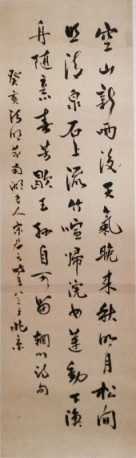 空山新雨後天氣晚來秋明月松間
照清泉石上流竹喧歸浣女蓮動下漁
舟隨意春芳歇王孫自可留輞川詩句
癸亥清明南湖老人